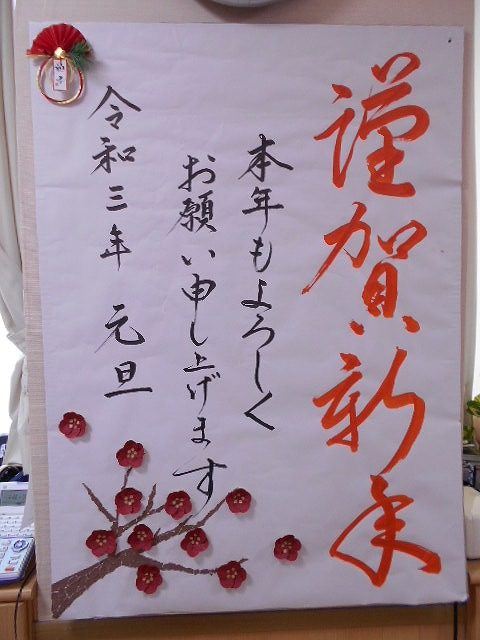 謹賀新年
本年もよろしく
お願い申し上げます
令和三年 元旦